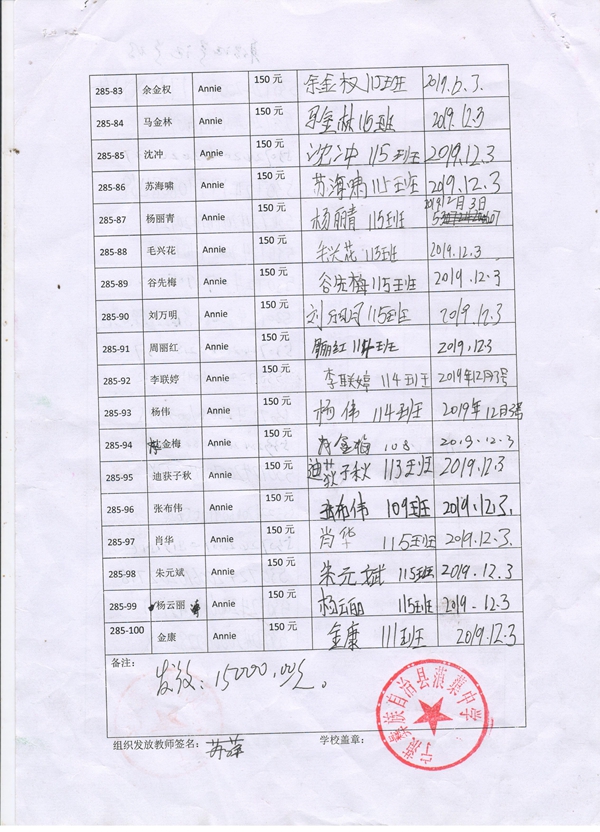 285-83 余金权 Annie 150元 余金权 115班 2019.12.3.
285-84 马金林 Annie 150元 马金林 115班 2019.12.3
285-85 沈冲 Annie 150元 沈冲 115班 2019.12.3
285-86 苏海啸 Annie 150元 苏海啸 115班 2019.12.3
285-87 杨丽青 Annie 150元 杨丽青 115班 2019年12月3日
285-88 毛兴花 Annie 150元 毛兴花 113班 2019.12.3
285-89 谷先梅 Annie 150元 谷先梅 115班 2019.12.3
285-90 刘万明 Annie 150元 刘万明 115班 2019.12.3
285-91 周丽红 Annie 150元 周丽红 114班 2019.12.3
285-92 李联婷 Annie 150元 李联婷 114班 2019年12月3号
285-93 杨伟 Annie 150元 杨伟 114班 2019年12月3号
285-94 金梅 Annie 150元 金梅 108 2019.12.3
285-95 迪获子秋 Annie 150元 迪荻子秋 113班 2019.12.3
285-96 张布伟 Annie 150元 张布伟 109班 2019.12.3.
285-97 肖华 Annie 150元 肖华 115班 2019.12.3.
285-98 朱元斌 Annie 150元 朱元斌 115班 2019.12.3
285-99 杨云丽 Annie 150元 杨云丽 115班 2019.12.3
285-100 金康 Annie 150元 金康 111班 2019.12.3
备注：
发放：15000.00元。
宁蒗彝族自治县蒗蕖中学
组织发放教师签名：苏萍 学校盖章：